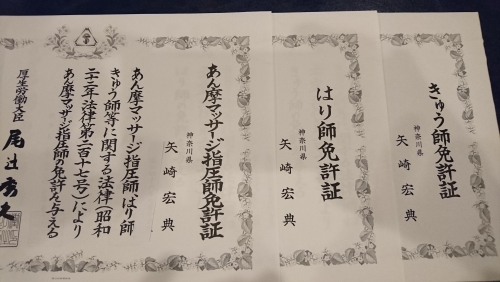 きゅう師免許証
神奈川県
矢崎宏典
はり師免許証
神奈川県
矢崎宏典
あん摩マッサージ指圧師免許証
神奈川県
矢崎宏典
あん摩マッサージ指圧師はり師
きゅう師等に関する法律(昭和
二十二年法律第二百十七号)により
あん摩マッサージ指圧師の免許を与える
厚生労働大臣
尾辻秀久